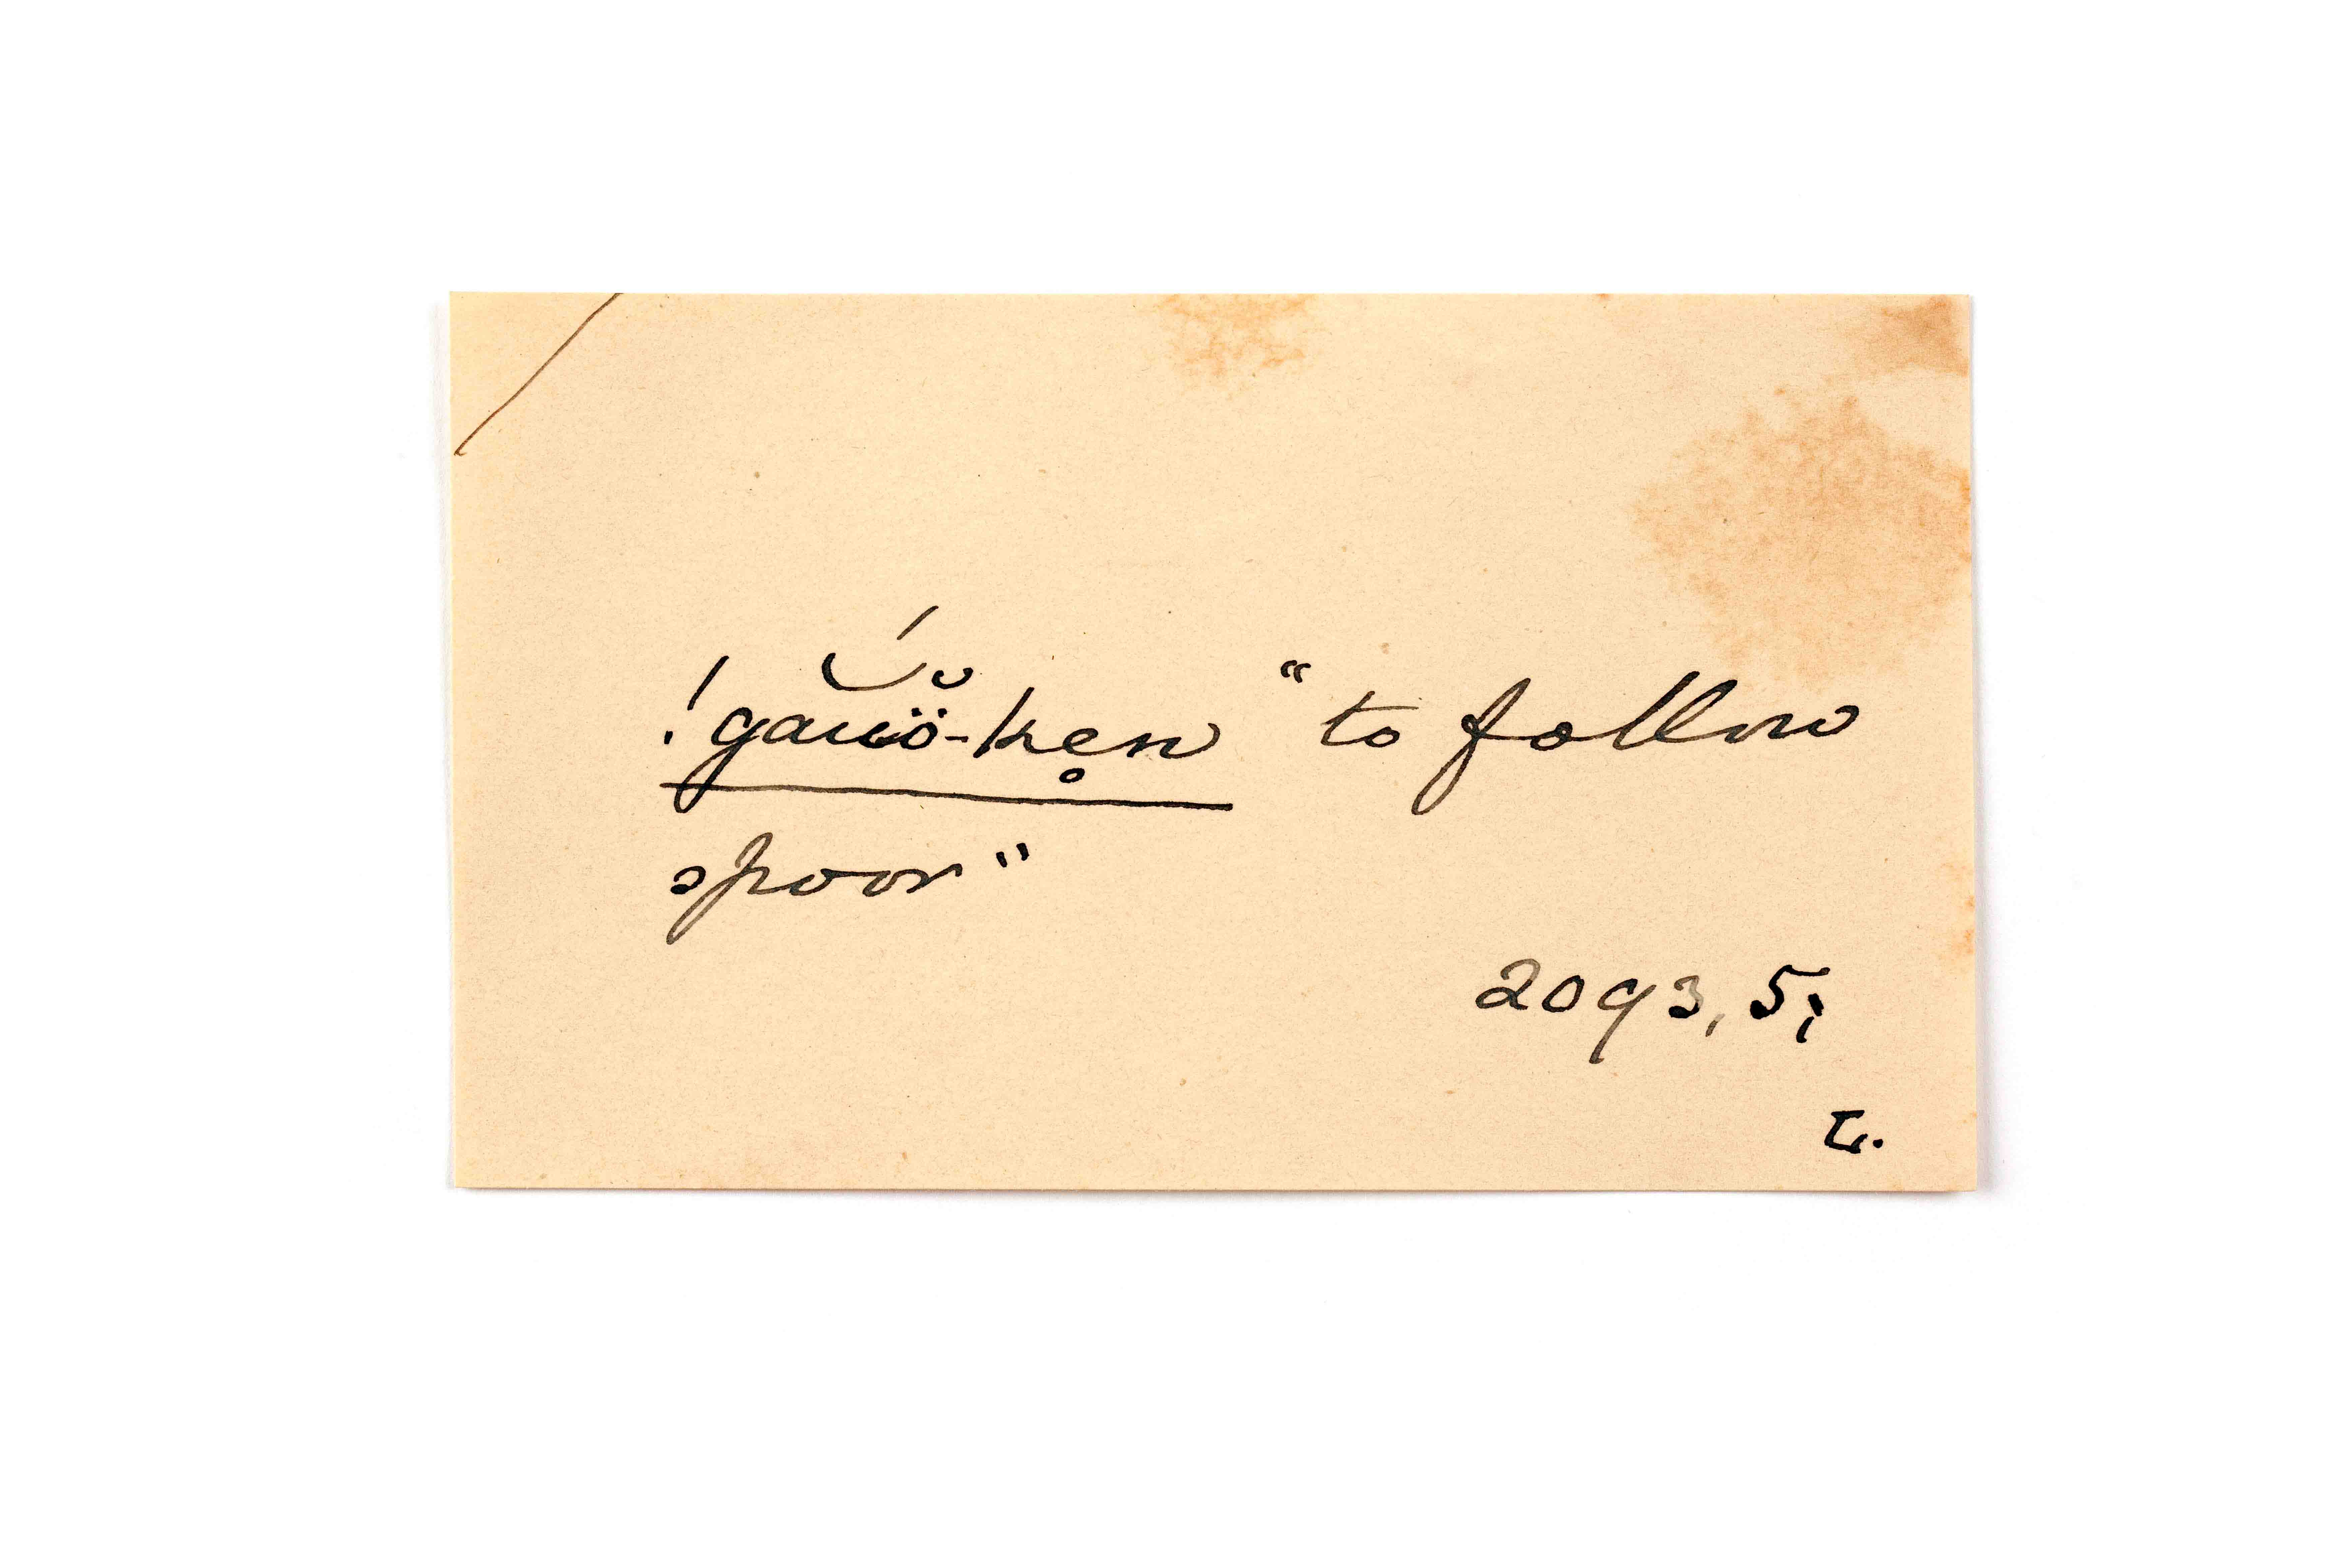 !gaŭ́ö̆-ke̥n “to follow
spoor”
2093, 5;
L.